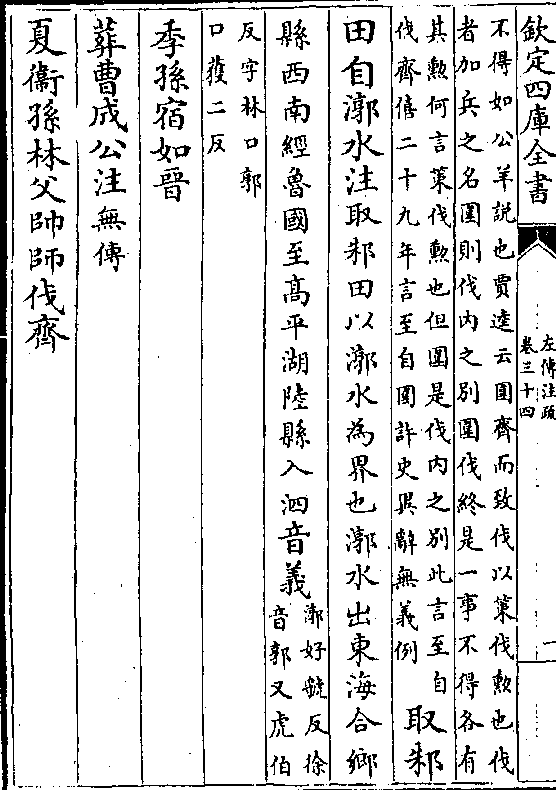 欽定四庫全書
左傳注疏
卷三十四
一
不得如公羊說也賈逵云圍齊而致伐以策伐勲也伐
者加兵之名圍則伐內之别圍伐終是一事不得各有
其勲何言策伐勲也但圍是伐內之别此言至自
伐齊僖二十九年言至自圍許史異辭無義例
取邾
田自漷水注取邾田以漷水為界也漷水出東海合鄉
縣西南經魯國至髙平湖陸縣入泗音義
漷好虢反徐
音郭又虎伯
反字林口郭
口蒦二反
季孫宿如晉
葬曹成公注無傳
夏衞孫林父帥師伐齊